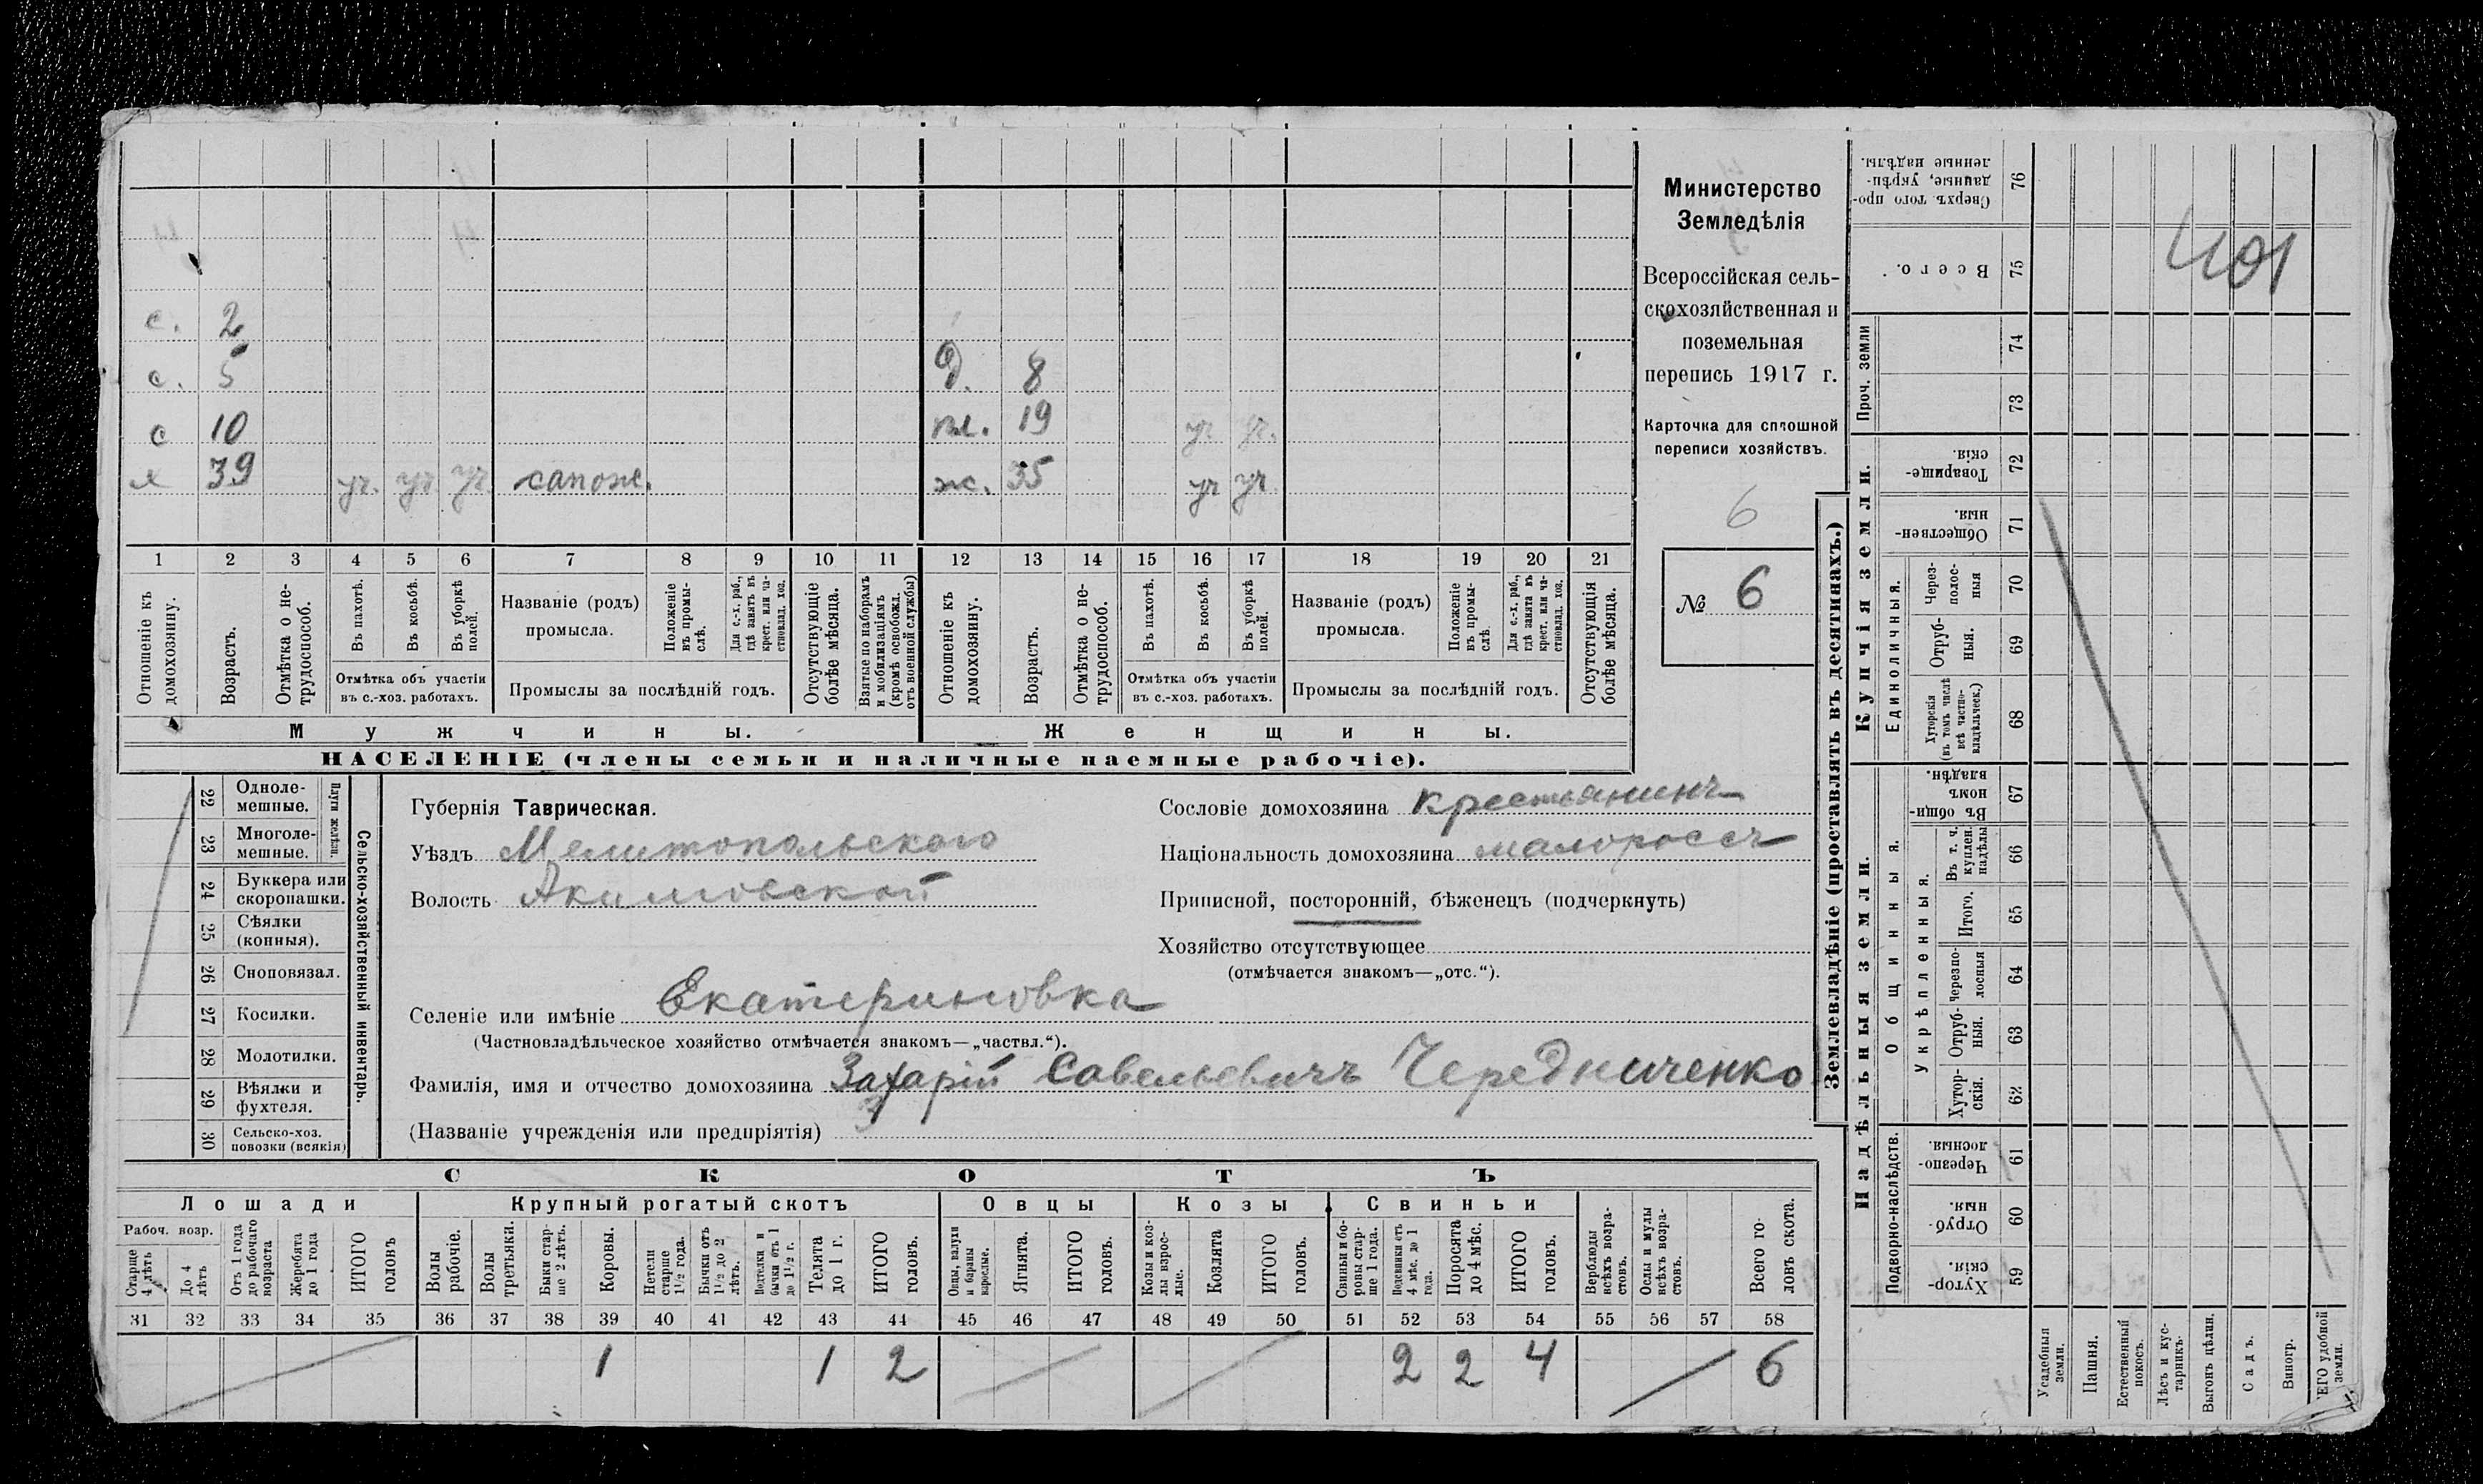 с. 2
с. 5 д. 8
с 10 пл. 19 уч уч.
х 39 уч. уч уч. сапож. ж. 35 уч уч
1 2 3 4 5 6 7 8 9 10 11 12 13 14 15 16 17 18 19 20 21
Отношеніе къ домохозяину.
Возрастъ.
Отмѣтка о не-
трудоспособ.
Въ пахотѣ.
Въ косьбѣ.
Въ уборкѣ полей.
Отмѣтка объ участіи
въ с.-хоз. работахъ.
Названіе (родъ)
промысла.
Положеніе въ промы-
слѣ.
Для с.-х. раб.,
гдѣ занятъ въ
крест. или ча-
стновлад. хоз.
Промыслы за послѣдній годъ.
Отсутствующіе
болѣе мѣсяца.
Взятые по наборамъ
и мобилизаціямъ
(кромѣ освобожд.
отъ военной службы)
Отношеніе къ
домохозяину.
Возрастъ.
Отмѣтка о не-
трудоспособ.
Въ пахотѣ.
Въ косьбѣ.
Въ уборкѣ
полей.
Отмѣтка объ участіи
въ с.-хоз. работахъ.
Названіе (родъ)
промысла.
Положеніе
въ промы-
слѣ.
Для с.-х. раб.,
гдѣ занята въ
крест. или ча-
стновлад. хоз.
Промыслы за послѣдній годъ.
Отсутствующія
болѣе мѣсяца.
Мужчины.
Женщины.
НАСЕЛЕНІЕ (члены семьи и наличные наемные рабочіе).
Министерство
Земледѣлія
Всероссійская сель-
скохозяйственная и
поземельная
перепись 1917 г.
Карточка для сплошной
переписи хозяйствъ.
6
№ 6
22 Одноле-
мешные.
23 Многоле-
мешные.
Плуги желѣзн.
24 Буккера или
скоропашки.
25 Сѣялки
(конныя).
26 Сноповязал.
27 Косилки.
28 Молотилки.
29 Вѣялки и
фухтеля.
30 Сельско-хоз.
повозки (всякія)
Сельско-хозяйственный инвентарь.
Губернія Таврическая.
Уѣздъ Мелитопольскаго
Волость Акимовской
Сословіе домохозяина крестьянинъ
Національность домохозяина малороссъ
Приписной, посторонній, бѣженецъ (подчеркнуть)
Хозяйство отсутствующее
(отмѣчается знакомъ—„отс.“).
Селеніе или имѣніе Екатериновка
(Частновладѣльческое хозяйство отмѣчается знакомъ—„частвл.“).
Фамилія, имя и отчество домохозяина Захарій Савельевичъ Чередниченко
(Названіе учрежденія или предпріятія)
СКОТЪ
Лошади
Крупный рогатый скотъ
Овцы
Козы
Свиньи
Рабоч. возр.
Старше
4 лѣтъ
До 4
лѣтъ
Отъ 1 года
до рабочаго
возраста
Жеребята
до 1 года
ИТОГО
головъ
Волы
рабочіе.
Волы
третьяки.
Быки стар-
ше 2 лѣтъ.
Коровы.
Нетели
старше
1½ года.
Бычки отъ
1½ до 2
лѣтъ.
Подтелки и
бычки отъ 1
до 1½ г.
Телята
до 1 г.
ИТОГО
головъ.
Овцы, валухи
и бараны
взрослые.
Ягнята.
ИТОГО
головъ.
Козы и коз-
лы взрос-
лые.
Козлята
ИТОГО
головъ.
Свиньи и бо-
ровы стар-
ше 1 года.
Подсвинки отъ
4 мѣс. до 1
года.
Поросята
до 4 мѣс.
ИТОГО
головъ.
Верблюды
всѣхъ возра-
стовъ.
Ослы и мулы
всѣхъ возра-
стовъ.
Всего го-
ловъ скота.
31 32 33 34 35 36 37 38 39 40 41 42 43 44 45 46 47 48 49 50 51 52 53 54 55 56 57 58
1 1 2 2 2 4 6
Землевладѣніе (проставлять въ десятинахъ.)
Купчія земли.
Надѣльныя земли.
Проч. земли
Единоличныя.
Общинныя.
Укрѣпленныя.
Подворно-наслѣдств.
Сверхъ того про-
данные, укрѣп-
ленные надѣлы. 76
Всего. 75
74
73
Товарище-
скія. 72
Обществен-
ныя. 71
Через-
полос-
ныя 70
Отруб-
ныя. 69
Хуторскія
(въ томъ числѣ
всѣ частно-
владѣльческ.) 68
Въ общин-
номъ
владѣн. 67
Въ т. ч.
куплен.
надѣлы 66
Итого. 65
Черезпо-
лосныя 64
Отруб-
ныя. 63
Хутор-
скія. 62
Черезпо-
лосныя. 61
Отруб-
ныя. 60
Хутор-
скія. 59
401
Усадебныя
земли.
Пашня.
Естественный
покосъ.
Лѣсъ и кус-
тарникъ.
Выгонъ цѣлин.
Садъ.
Виногр.
ЕГО удобной
земли.